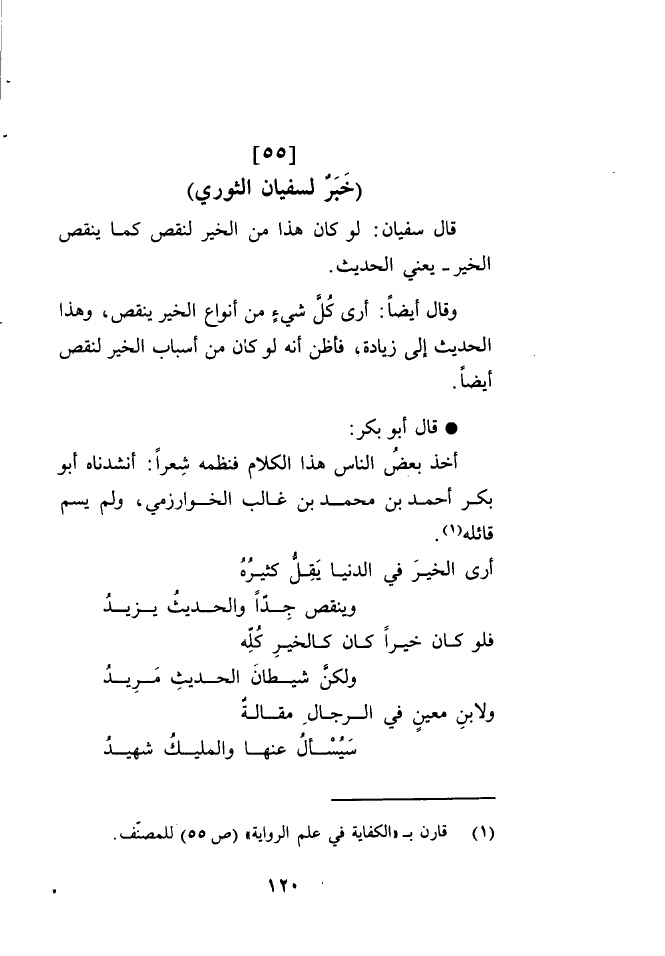 [٥٥]
(خَبَرٌ لسفيان الثوري)
قال سفيان: لو كان هذا من الخير لنقص كما ينقص
الخير - يعني الحديث.
وقال أيضاً: أرى كُلَّ شيءٍ من أنواع الخير ينقص، وهذا
الحديث إلى زيادة، فأظن أنه لو كان من أسباب الخير لنقص
أيضاً.
● قال أبو بكر:
أخذ بعضُ الناس هذا الكلام فنظمه شِعراً: أنشدناه أبو
بكر أحمد بن محمد بن غالب الخوارزمي، ولم يسم
قائله(١).
أرى الخيرَ في الدنيا يَقِلُّ كثيرُهُ
وينقص جِدّاً والحديثُ يزيدُ
فلو كان خيراً كان كالخيرِ كُلِّه
ولكنَّ شيطانَ الحديثِ مَرِيدُ
ولابنِ معينٍ في الرجالِ مقالةٌ
سَيُسْأَلُ عنها والمليكُ شهيدُ
(١) قارن بـ «الكفاية في علم الرواية» (ص ٥٥) للمصنّف.
١٢٠